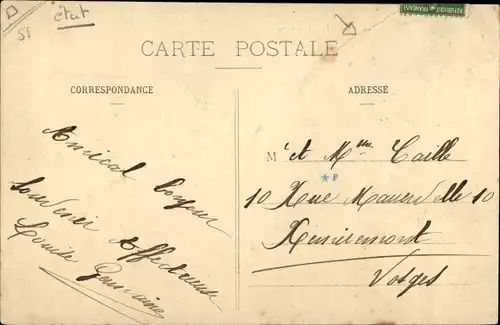 55
état
RÉPUBLIQUE FRANÇAISE
CARTE POSTALE
CORRESPONDANCE
Amical bonjour
Souvenir affectueux
Louise Germaine
ADRESSE
Mr et Mme Caille
10 Rue 10
Remiremont
Vosges